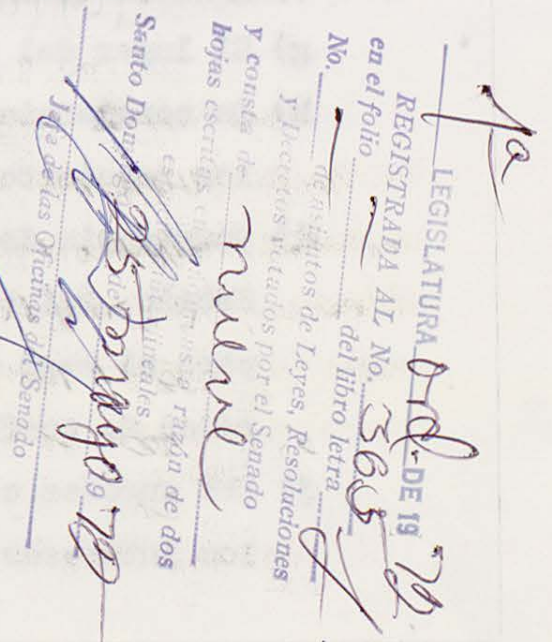 1a LEGISLATURA Ord. DE 19 72
REGISTRADA AL No. 365
en el folio — del libro letra
No. — de asientos de Leyes, Resoluciones
y Decretos votados por el Senado
y consta de nueve
hojas escritas a razón de dos
Santo Domingo 25 mayo 19 72
Jefe de las Oficinas del Senado